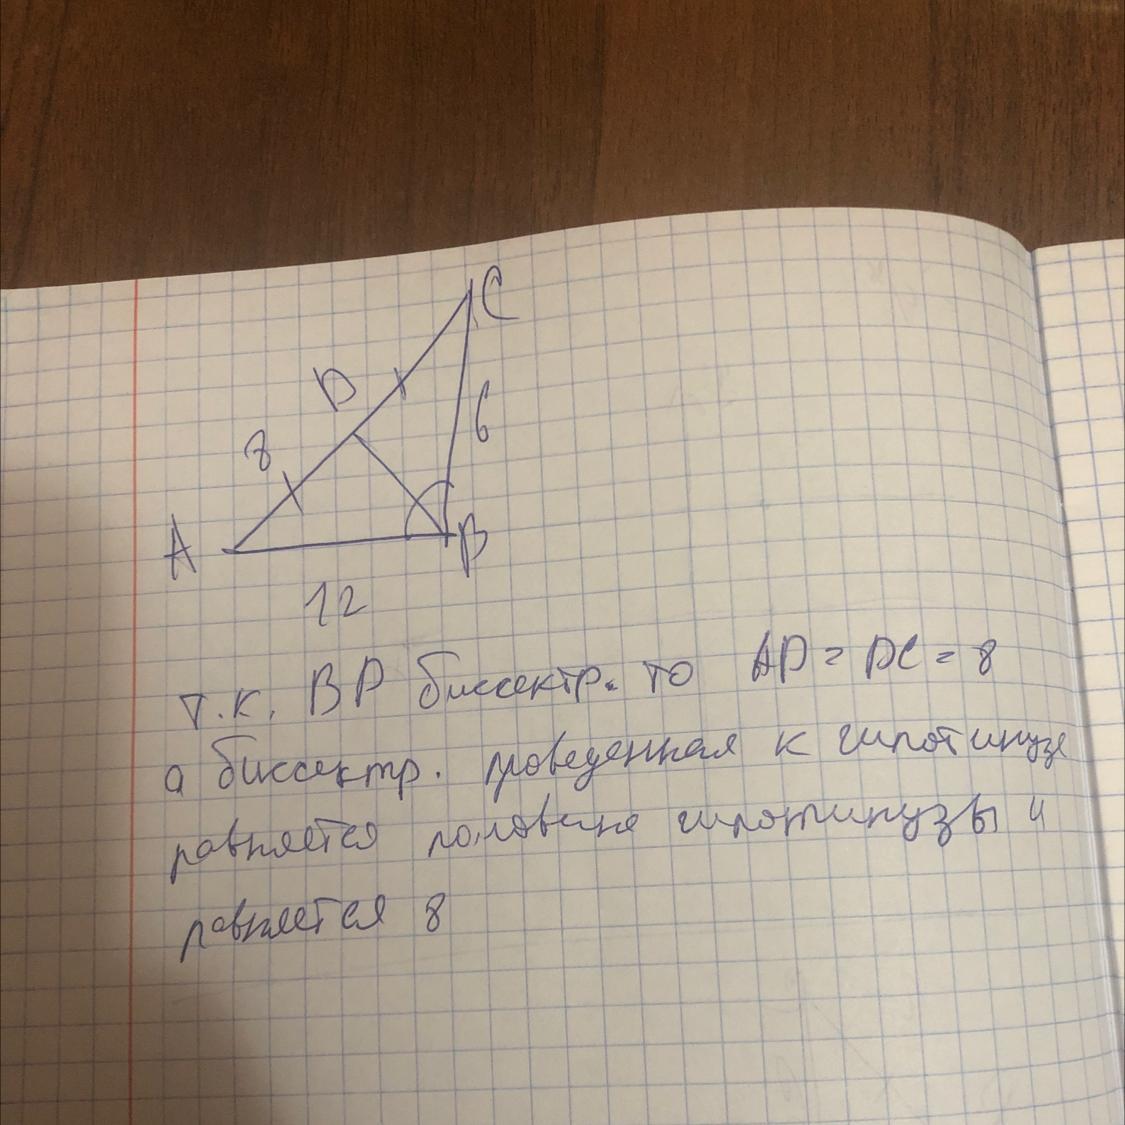 C
D
8
6
A
B
12
т.к. BD биссектр. то AD = DC = 8
а биссектр. проведенная к гипотинузе
равняется половине гипотинузы и
равняется 8